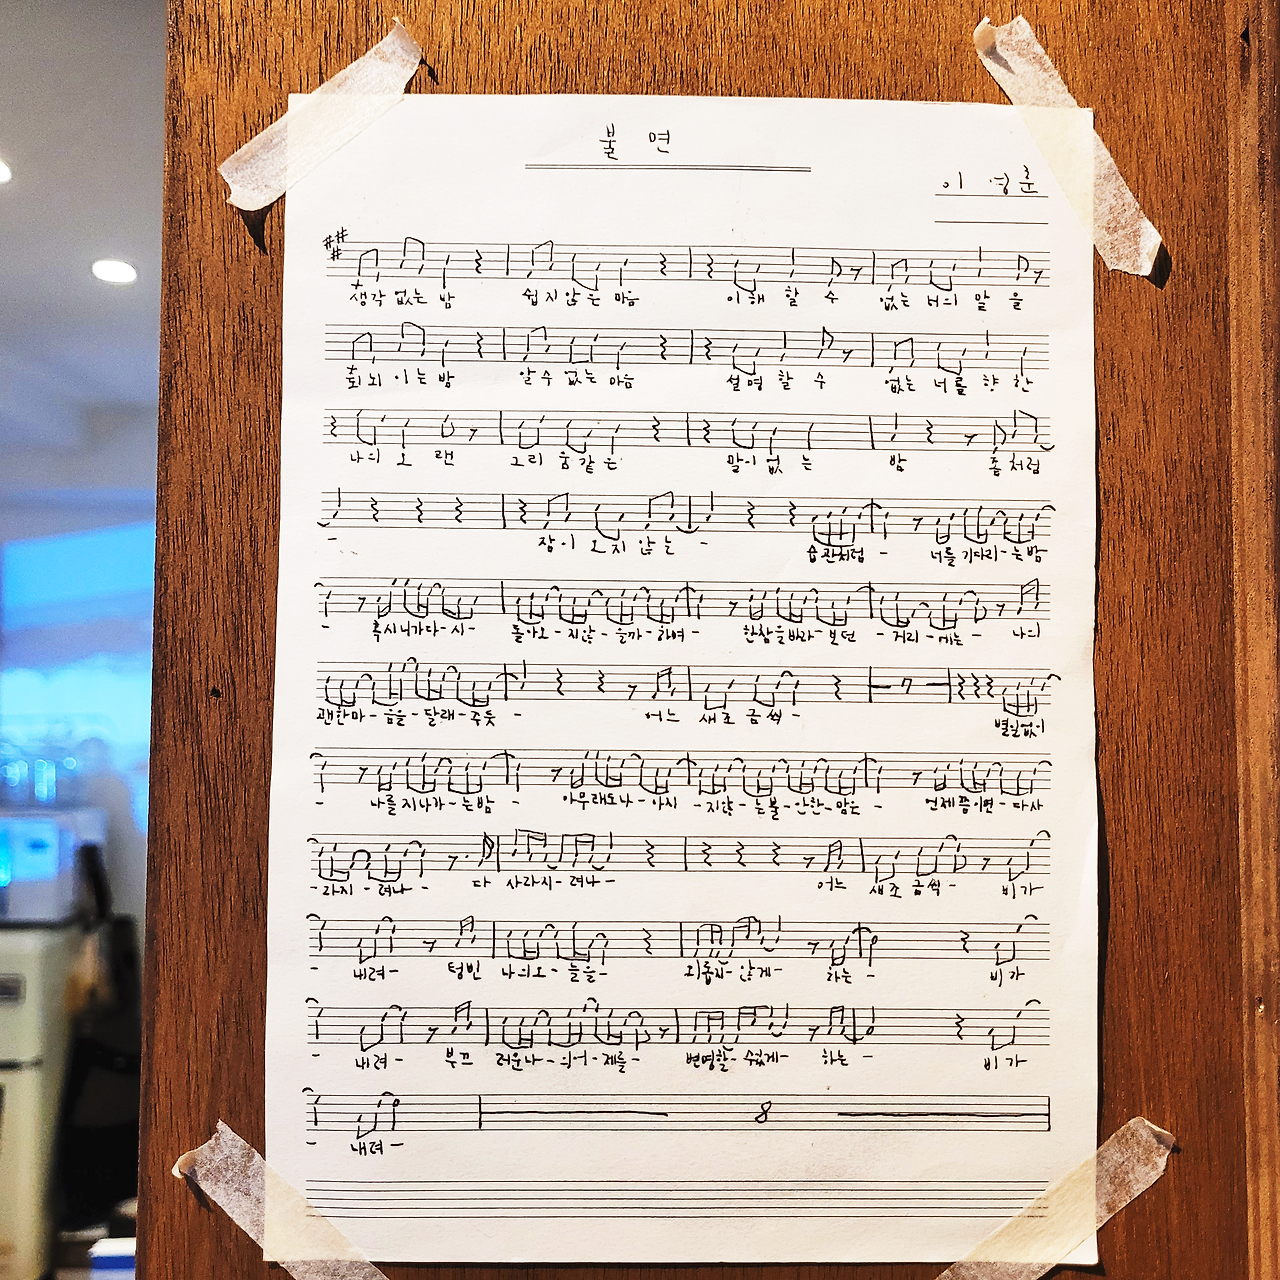 불 면
이 영훈
생각 없는 밤 쉽지않은 마음 이해 할 수 없는 너의 말 을
되뇌 이는 밤 알수 없는 마음 설명 할 수 없는 너를 향 한
나의 오 랜 그리 움같은 말이 없 는 밤 좀처럼
- 잠이 오지 않는 - 습관처럼 - 너를 기다리-는밤
- 혹시 니가다-시- 돌아오-지않-을까-하여- 한참을바라-보던 -거리-에는- 나의
괜한마-음을-달래-주듯 - 어느 새조 금씩- 7 별일없이
- 나를 지나가-는밤 - 아무래도나-아지 -지않-는불-안한-맘은 - 언제쯤이면-다사
-라지-려나- 다 사라지-려나- 어느 새조 금씩- 비가
- 내려- 텅빈 나의오-늘을- 외롭지-않게- 하는- 비가
- 내려- 부끄 러운나-의어-제를- 변명할-수없게- 하는- 비가
- 내려- 8